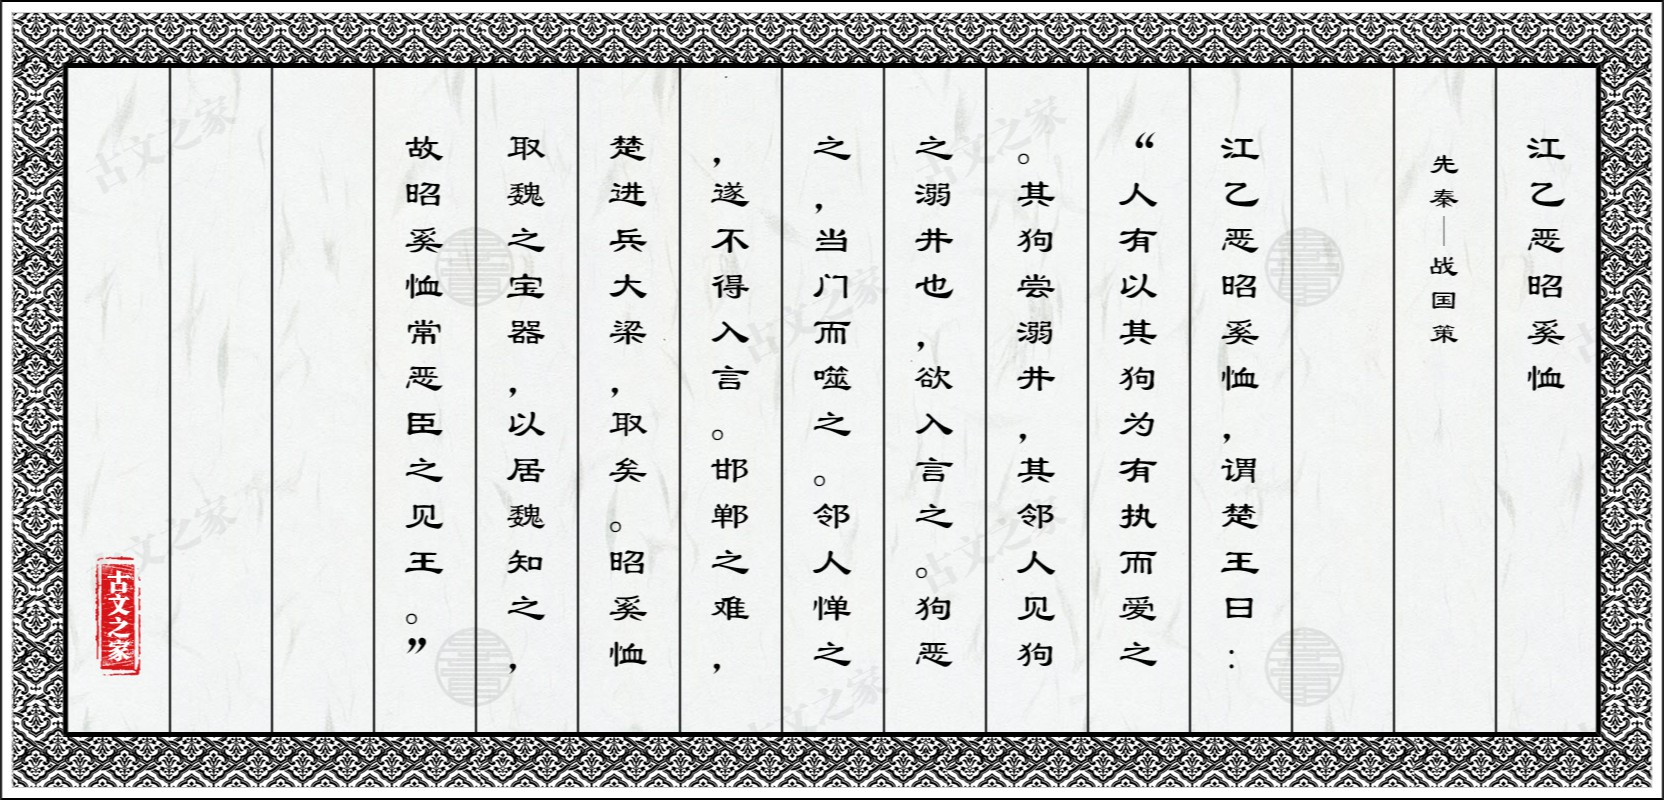 江乙恶昭奚恤
先秦—战国策
江乙恶昭奚恤，谓楚王曰：
“人有以其狗为有执而爱之
。其狗尝溺井，其邻人见狗
之溺井也，欲入言之。狗恶
之，当门而噬之。邻人惮之
，遂不得入言。邯郸之难，
楚进兵大梁，取矣。昭奚恤
取魏之宝器，以居魏知之，
故昭奚恤常恶臣之见王。”
古文之家